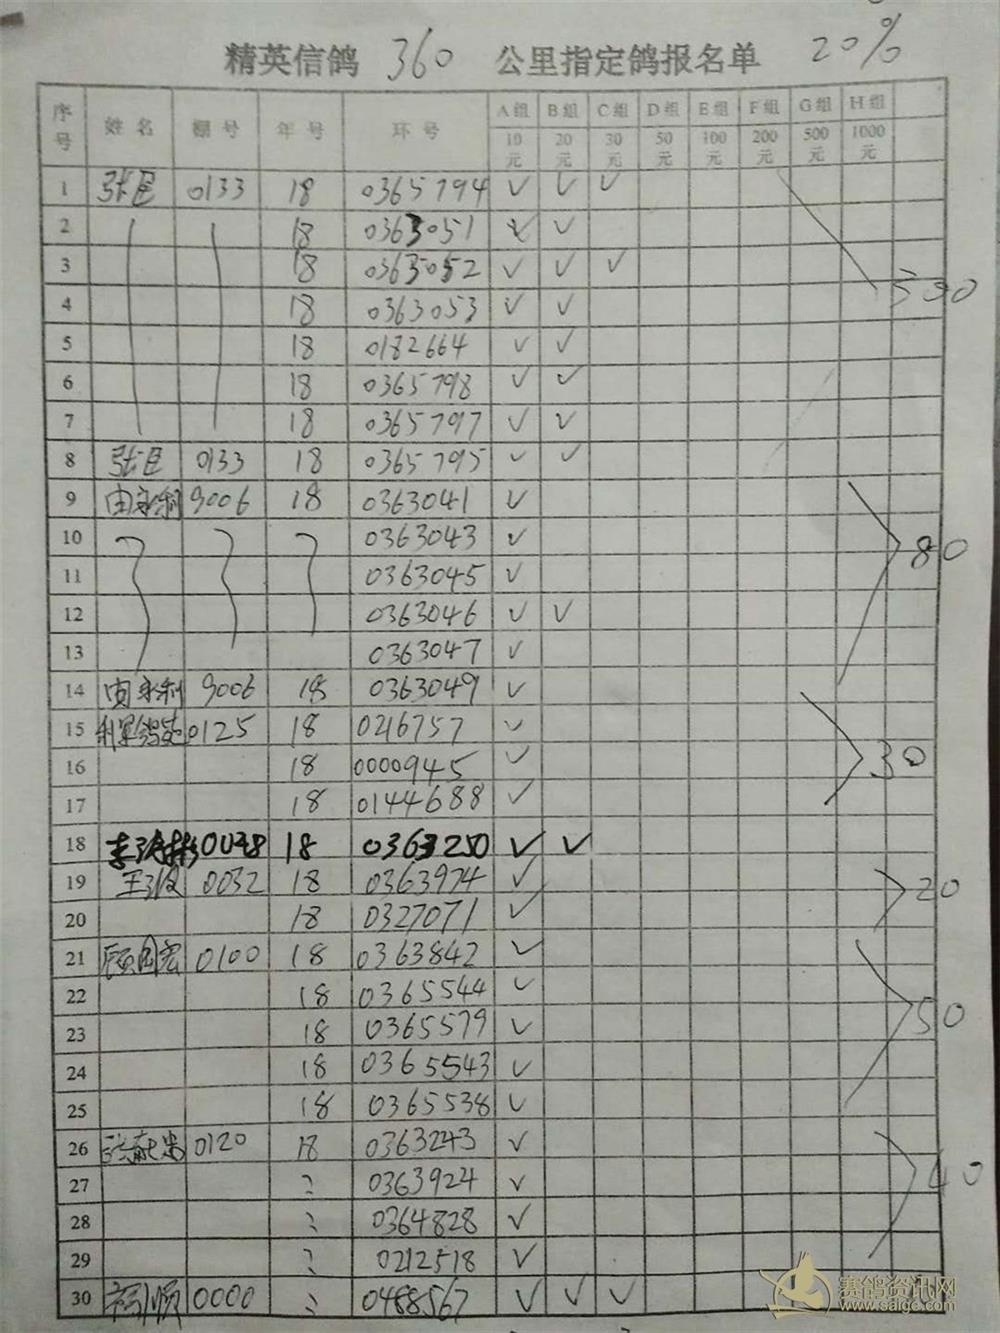 精英信鸽 360 公里指定鸽报名单 20%
序号 姓名 棚号 年号 环号 A组 B组 C组 D组 E组 F组 G组 H组
10元 20元 30元 50元 100元 200元 500元 1000元
1 张臣 0133 18 0365794 ✓ ✓ ✓
2 18 0363051 ✓ ✓
3 18 0363052 ✓ ✓ ✓
4 18 0363053 ✓ ✓
5 18 0182664 ✓ ✓
6 18 0365798 ✓ ✓
7 18 0365797 ✓ ✓
8 张臣 0133 18 0365795 ✓ ✓
9 由永利 9006 18 0363041 ✓
10 0363043 ✓
80
11 0363045 ✓
12 0363046 ✓ ✓
13 0363047 ✓
14 由永利 9006 18 0363049 ✓
15 0125 18 0216757 ✓
16 18 0000945 ✓ 30
17 18 0144688 ✓
18 0048 18 0363250 ✓ ✓
19 王波 0032 18 0363974 ✓ 20
20 18 0327071 ✓
21 顾国宏 0100 18 0363842 ✓
22 18 0365544 ✓
50
23 18 0365579 ✓
24 18 0365543 ✓
25 18 0365538 ✓
26 张献忠 0120 18 0363243 ✓
27 0363924 ✓ 40
28 0364828 ✓
29 0212518 ✓
30 0000 0488567 ✓ ✓ ✓
赛鸽资讯网
www.saige.com